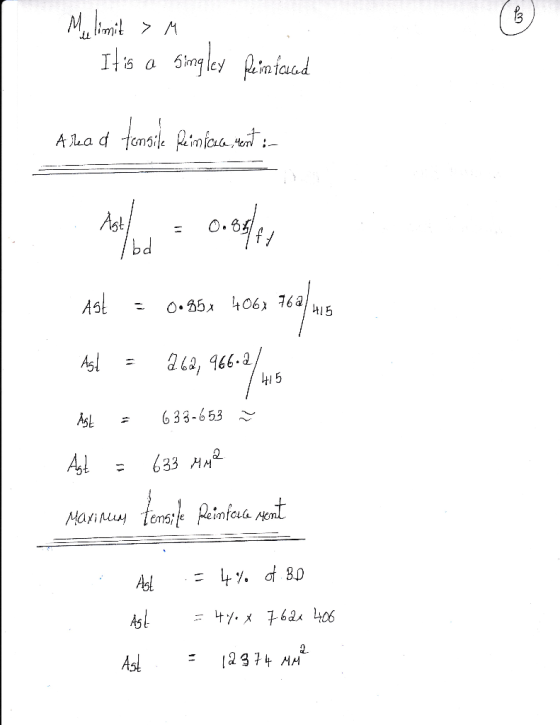 P3
Mu limit > M
It is a Singley Reinforced
Area of tensile Reinforcement :-
Ast/bd = 0.85/fy
Ast = 0.85 x 406 x 762/415
Ast = 262,966.2/415
Ast = 633-653 ≈
Ast = 633 MM²
Maximum tensile Reinforcement
Ast = 4% of BD
Ast = 4% x 762 x 406
Ast = 12374 MM²